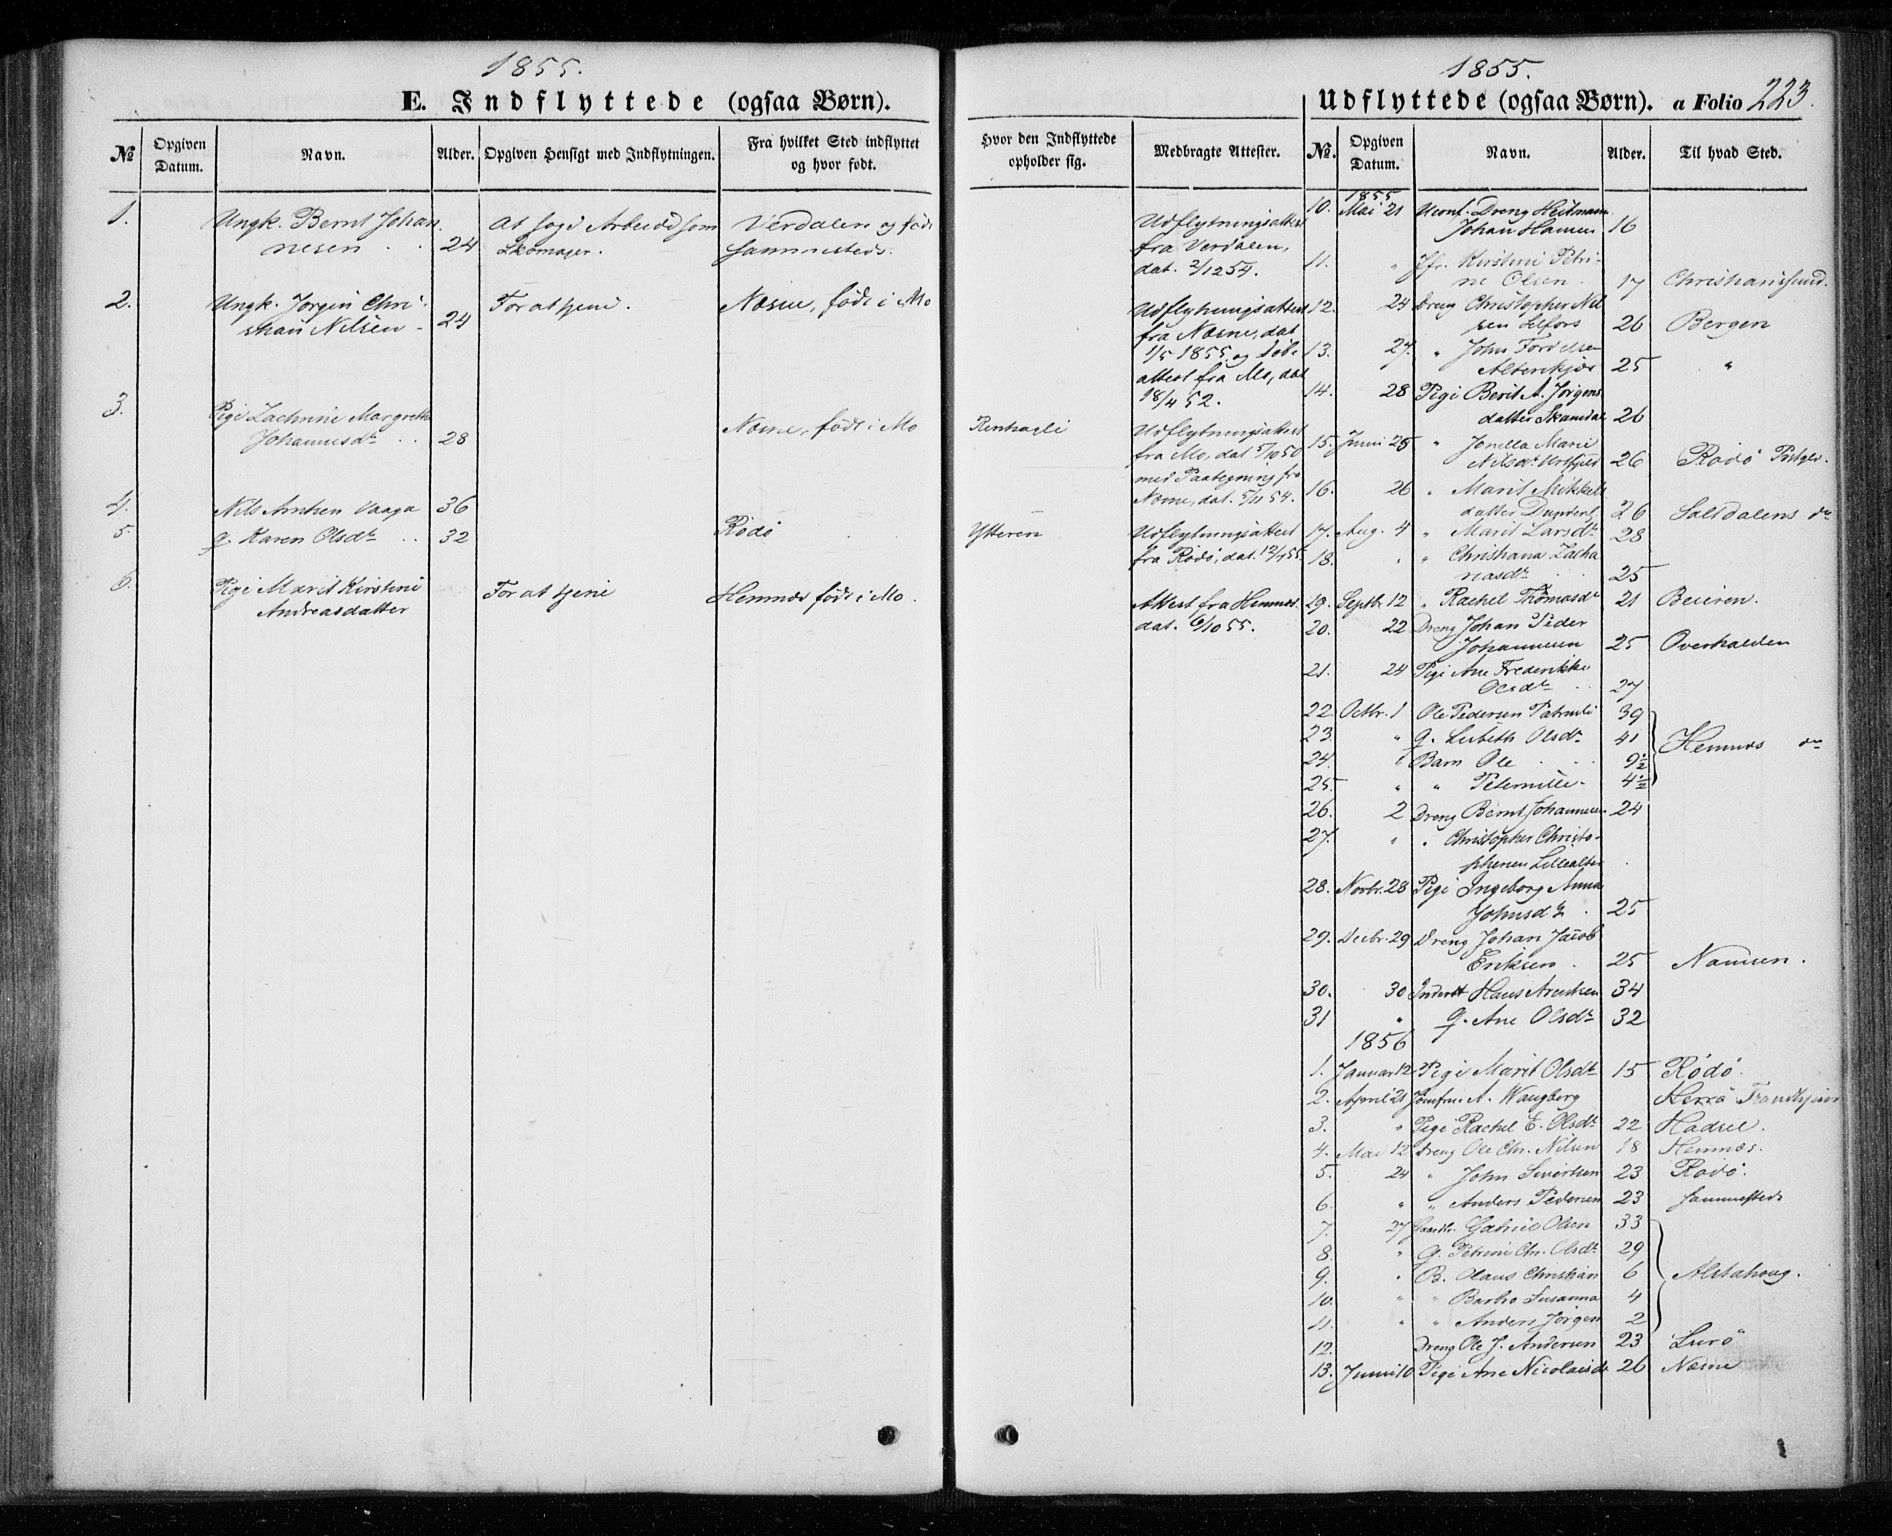 1855.
E. Indflyttede (ogsaa Børn).
№
Opgiven Datum.
Navn.
Alder.
Opgiven Hensigt med Indflytningen.
Fra hvilket Sted indflyttet og hvor født.
1.
Ungk. Bernt Johan
nesen
24
At søge Arbeide som
Skomager.
Verdalen og født
sammesteds.
2.
Ungk. Jørgen Chri
stian Nilsen
24
For at tjene.
Næsne, født i Mo
3.
Pige Margrethe
Johannesdr
28
Næsne, født i Mo
4.
Nils Arntsen Vaaga
36
5.
g. Karen Olsdr
32
Rødø
6.
Pige Marit Kirstine
Andreasdatter
For at tjene
Hemnæs født i Mo.
1855.
Udflyttede (ogsaa Børn). a Folio 223.
Hvor den Indflyttede opholder sig.
Medbragte Attester.
№.
Opgiven Datum.
Navn.
Alder.
Til hvad Sted.
Udflytningsattest
fra Verdalen,
dat. 2/12 54.
Udflytningsattest
fra Næsne, dat
1/5 1855, og Døbe
attest fra Mo, dat
18/4 52.
Udflytningsattest
fra Mo, dat 5/10 50
med Paategning fra
Næsne, dat. 5/11 54.
Ytteren
Udflytningsattest
fra Rødø, dat. 12/4 55.
Attest fra Hemnæs
dat. 6/10 55.
1855
10. Mai 21 Uconf. Dreng Heitmann
Johan Hansen 16
11. " Jfr. Kirstine Petri-
ne Olsen 17 Christiansund.
12. 24 Dreng Christopher Nil
sen Selfors 26 Bergen
13. 27. " John
25 "
14. 28 Pige Berit A. Jørgens
datter 26
15. Juni 25 " Jonilla Marie
Nilsdr 26 Rødø Prstgld.
16. 26 " Marit Mikkels
datter Dunderl. 26 Saltdalens do
17. Aug. 4 " Marit Larsdr 28
18. " " Christiana Zacha
riasdr 25
19. Septbr. 12 " Rachel Thomasdr 21 Beieren.
20. 22 Dreng Johan Peder
Johannesen 25 Overhalden
21. 24 Pige Ane Frederikke
Olsdr 27
22. Octbr. 1 Ole Pedersen 39
23. " g. Lisbeth Olsdr 41 Hemnæs do
24. " Barn Ole 9½
25. " " Peternille 4½
26. 2 Dreng Bernt Johannesen 24
27. " " Christopher Christo-
phersen Lillealter
28. Novbr. 28 Pige Ingeborg Anna
Johnsdr 25
29. Decbr. 29 Dreng Johan Jacob
Eriksen 25 Namsen.
30. 30 Inderst Hans Arntsen 34
31 " g. Ane Olsdr 32
1856
1. Januar 12 Pige Marit Olsdr 15 Rødø.
2. April 21 Jomfrue A. Wangberg Herrø
3. " Pige Rachel E. Olsdr 22 Hadsel.
4. Mai 12 Dreng Ole Chr. Nilsen 18 Hemnæs.
5. 24 " John Sivertsen 23 Rødø.
6. " " Anders Pedersen 23 sammesteds
7. 27 Gaardbr. Gabriel Olsen 33
8. " g. Petrine Chr. Olsdr 29
9. " B. Olaus Christian 6 Alstahoug.
10. " " Barbro Susanna 4
11. " " Anders Jørgen 2
12. Dreng Ole J. Andersen 23 Lurø
13. Juni 10 Pige Ane Nicolaisdr 26 Næsne